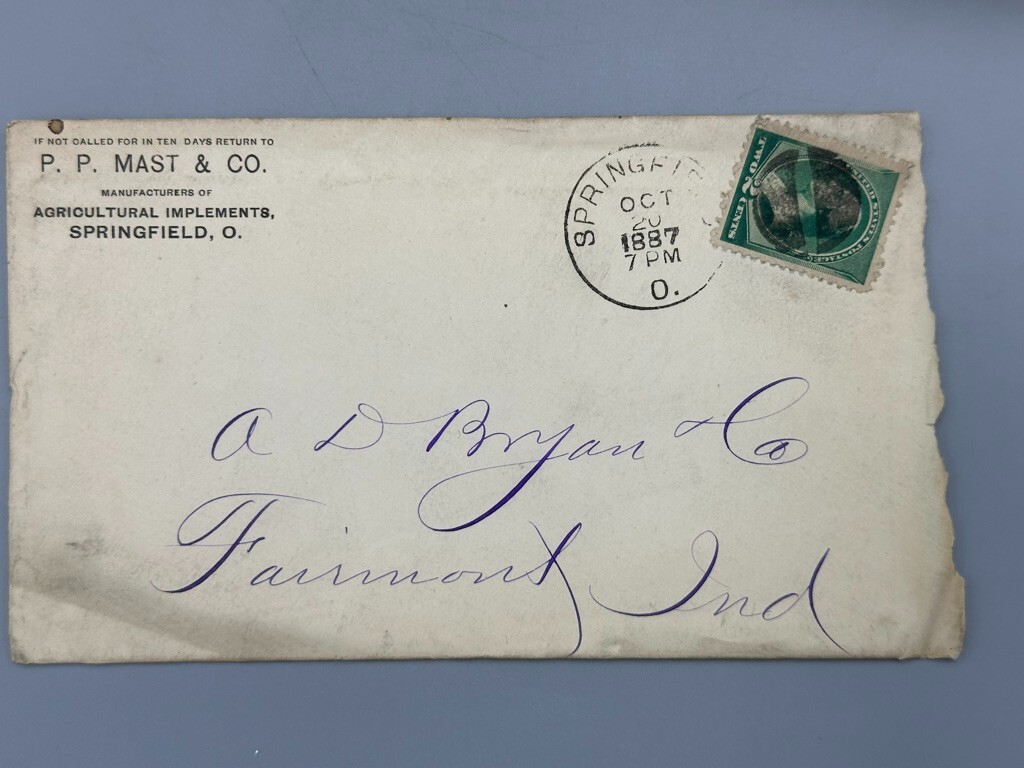 IF NOT CALLED FOR IN TEN DAYS RETURN TO
P. P. MAST & CO.
MANUFACTURERS OF
AGRICULTURAL IMPLEMENTS,
SPRINGFIELD, O.
SPRINGFIE
OCT
20
1887
7 PM
O.
TWO 2 CENTS
UNITED STATES POSTAGE
A D Bryan & Co
Fairmont Ind